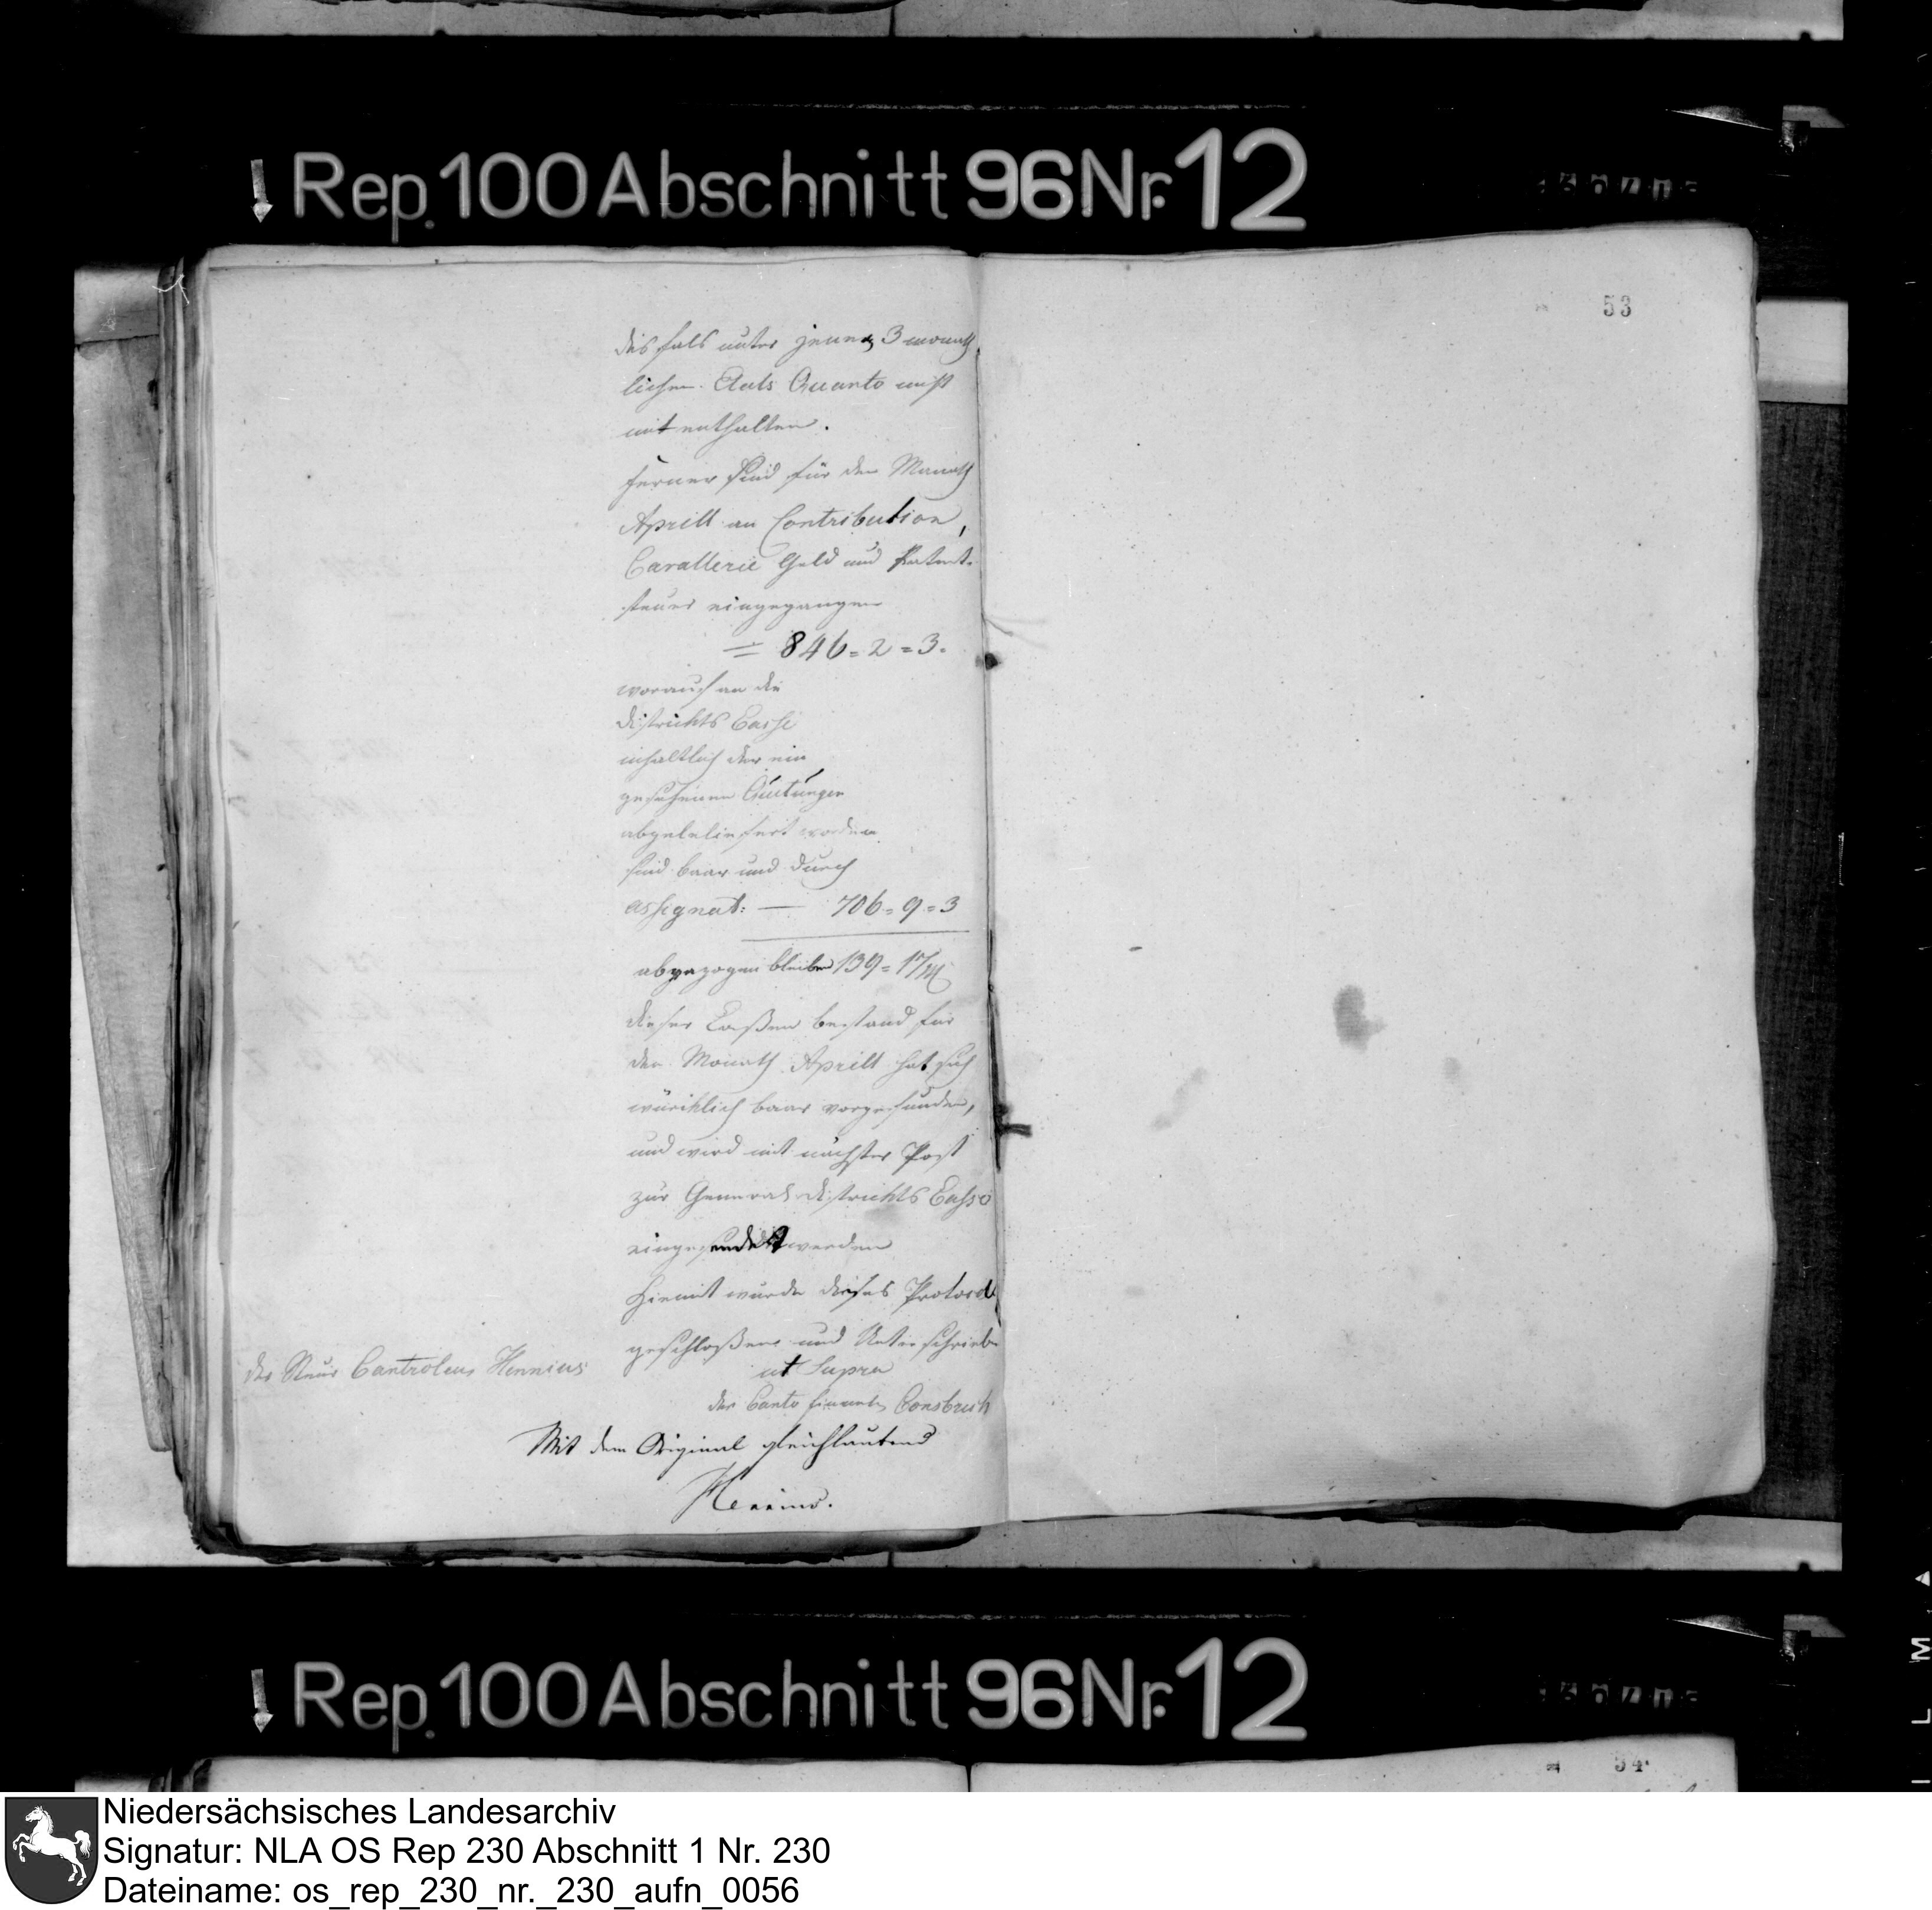 Rep. 100 Abschnitt 96 Nr. 12
53
des fals unter jenen 3 monath
lichen Etats Quanto nicht
mit enthalten.
ferner sind für den Monath
Aprill an Contribution,
Cavallerie Geld und Patent-
steuer eingegangen
= 846 = 2 = 3.
worauf an die
districts Casse
inhaltlich der ein
gesehenen Quitungen
abgeleliefert worden
sind baar und durch
assignat: — 706 = 9 = 3
abgezogen bleiben 139 = 17
dieser Caßen bestand für
den Monath Aprill hat sich
würcklich baar vorgefunden,
und wird mit nächster Post
zur General districkts Casse
eingesendet werden
Hiemit wurde dieses Protocol
geschloßen und Unterschrieben
ut Supra
der Steuer Controleur Hennius
der Canto Consbruch
Mit dem Original gleichlautend
Hennius.
Rep. 100 Abschnitt 96 Nr. 12
54
FILM
Niedersächsisches Landesarchiv
Signatur: NLA OS Rep 230 Abschnitt 1 Nr. 230
Dateiname: os_rep_230_nr._230_aufn_0056